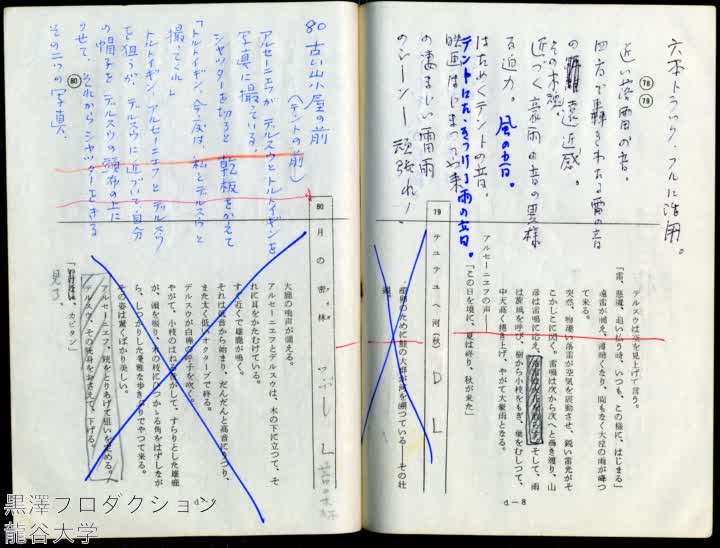 六本トラック、フルに活用。
近い落雷の音。
四方で轟きわたる雷の音
の遠近感。
その木魂。
近づく豪雨の音の異様
な迫力。風の音。
はためくテントの音。
テントにたゝきつける雨の音。
映画はじまって以来
の凄まじい雷雨
のシーン！頑張れ！
78
79
デルスウは空を見上げて言う。
「雷、悪魔、追い払う時、いつも、この様に、はじまる」
遠雷が吼え、薄暗くなり、間もなく大粒の雨が降っ
て来る。
突然、物凄い落雷が空気を震動させ、鋭い雷光がそ
こかしこに閃く。雷鳴は次から次へと轟き渡り、山
彦は雷鳴に応え、
そして、雨
は旋風を呼び、樹から小枝をもぎ、葉をむしって、
中天高く捲き上げ、やがて大豪雨となる。
アルセーニエフの声――
「この日を境に、夏は終り、秋が来た」
d―8
19
テュテュヘ河(秋)
D L
産卵のために鮭の大群が河を溯っている――その壮
観。
80 古い山小屋の前
(テントの前)
アルセーニエフがデルスウとトルトイギンを
写真に撮っている。
シャッターを切ると乾板をかえて
「トルトイギン、今度は、私とデルスウと
撮ってくれ」
トルトイギン、アルセーニエフとデルスウ
を狙うが、デルスウに近づいて自分
の帽子をデルスウの頭布の上に
のせて、それからシャッターをきる
その二つの写真。
80
80
月の密林
L
大鹿の鳴声が聴える。
アルセーニエフとデルスウは、木の下に立って、そ
れに耳をかたむけている。
すぐ近くで雄鹿が鳴く。
それは低音から始まり、だんだんと高音にうつり、
また太く低いオクターブで終る。
デルスウが白樺の呼子を吹く。
やがて、小枝のはねる音がして、すらりとした雄鹿
が、頭を振り、木の枝にひっかゝる角をはずしなが
ら、しっかりした優雅な歩きぶりでやって来る。
その姿は驚くばかり美しい。
アルセーニエフ、銃をとりあげて狙いを定める。
デルスウ、その銃身をおさえて、下げる。
カピタン」
見ろ、
黒澤プロダクション
龍谷大学